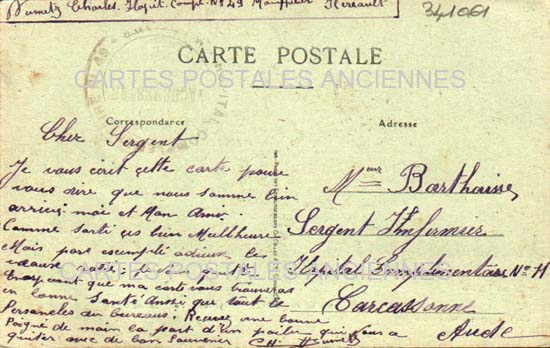 Dumetz Charles. Hopit. Compl. N° 49 Montpellier Herault
341061
CARTE POSTALE
CARTES POSTALES ANCIENNES
Correspondance
Adresse
Cher Sergent
Je vous écrit cette carte pour
vous dire que nous somme bien
arrivés moi et Mon Ami.
Comme Sorti
Mais par
Enespérant que ma carte vous trouveras
en bonne Santé que tout le
Personeles du bureau: Recever une bonne
Poigne de main la part d'un poilu qui vous a
quiter avec de bon Souvenir Ch. Dumetz
Meur Barthaise,
Sergent Infirmier
Hôpital Complémentaire N° 11
CARTES POSTALES ANCIENNES
Carcassonne
Aude